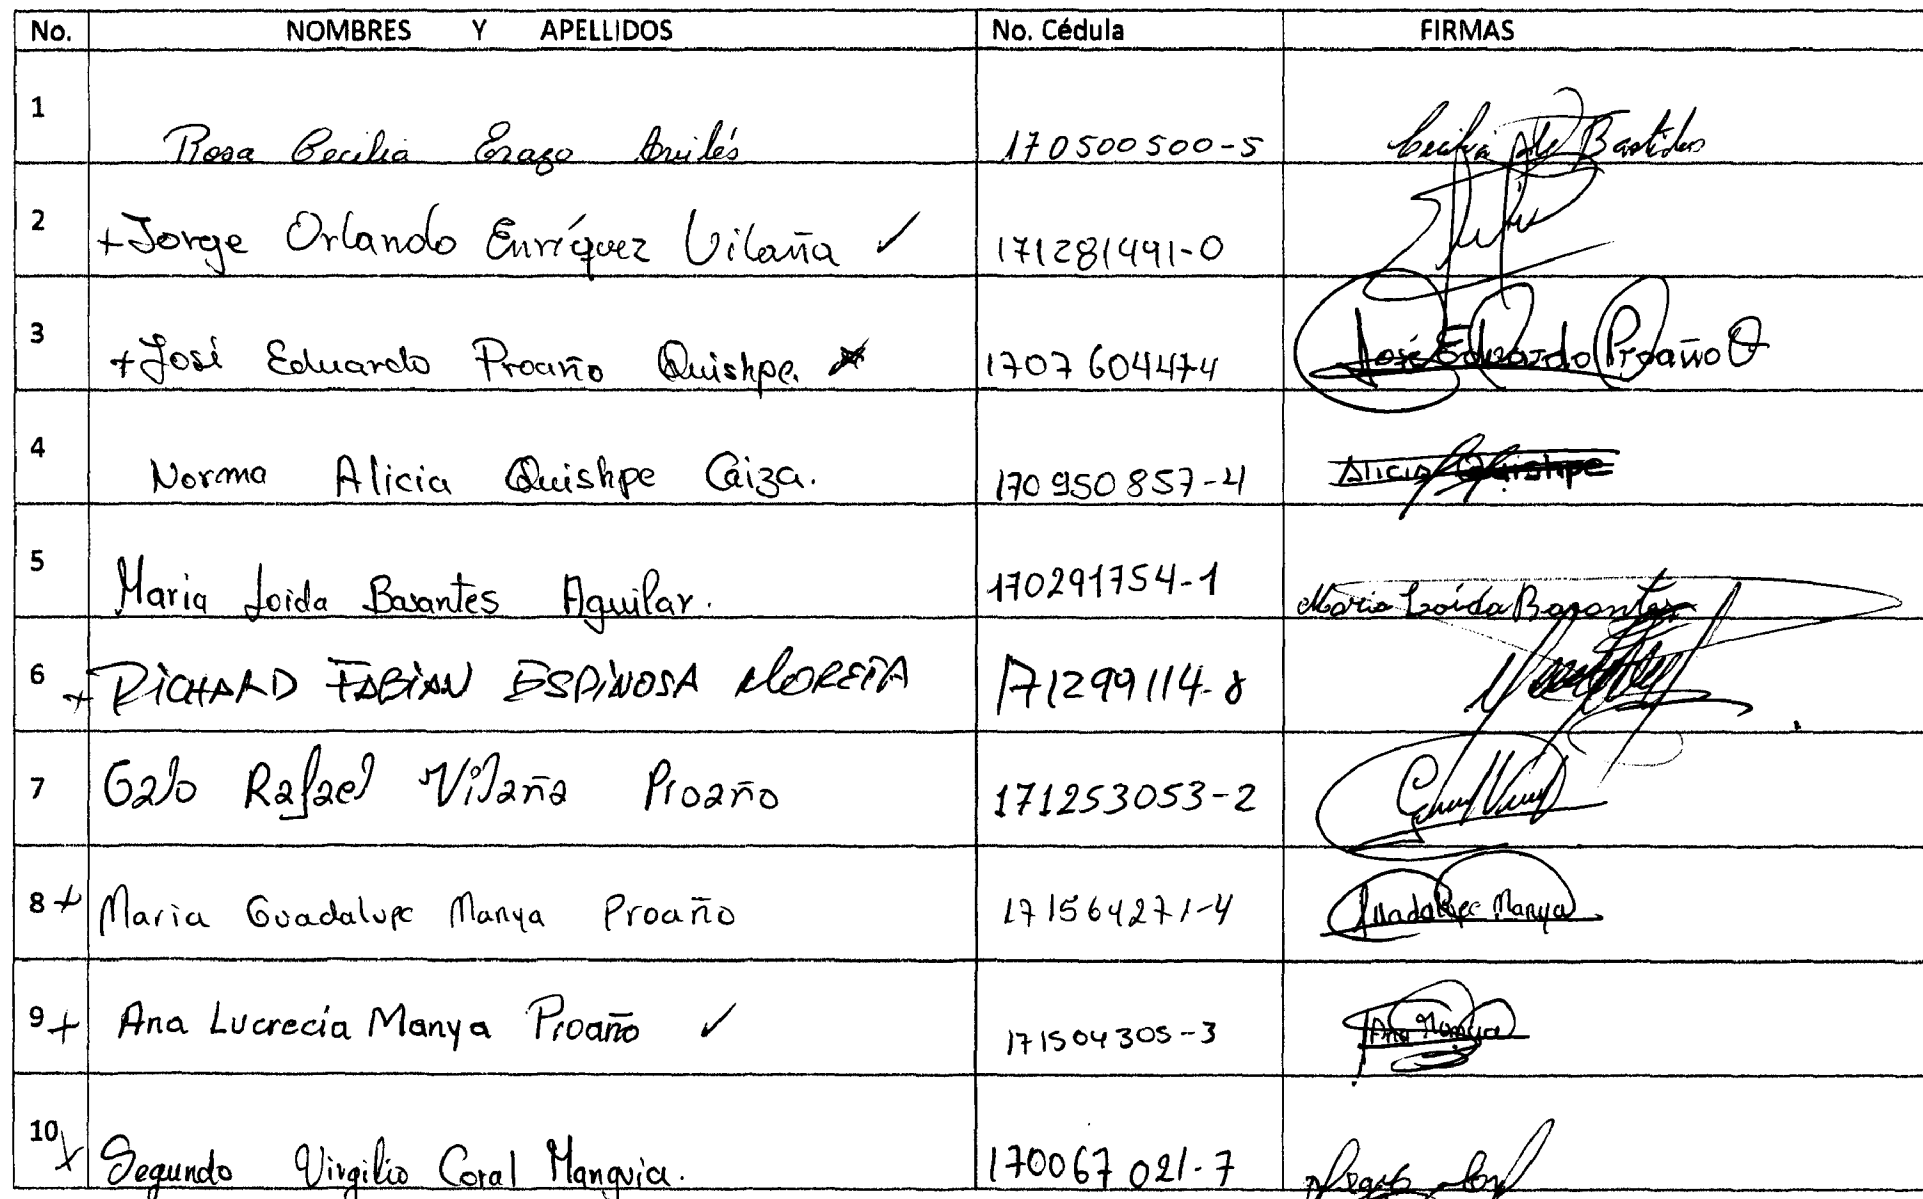 No. NOMBRES Y APELLIDOS No. Cédula FIRMAS
1 Rosa Cecilia Erazo Avilés 170500500-5 Cecilia de Bastidas
2 +Jorge Orlando Enríquez Vilaña ✓ 171281491-0
3 +José Eduardo Proaño Quishpe. 1707604474 José Eduardo Proaño Q
4 Norma Alicia Quishpe Caiza. 170950857-4 Alicia Quishpe
5 Maria Loida Basantes Aguilar. 170291754-1 Maria Loída Basantes
6 + RICHARD FABIAN ESPINOSA MORETA 171299114-8
7 Galo Rafael Vilaña Proaño 171253053-2
8 + Maria Guadalupe Manya Proaño 171564271-4 Guadalupe Manya
9 + Ana Lucrecia Manya Proaño ✓ 171504305-3 Ana Manya
10 x Segundo Virgilio Coral Manguia. 170067021-7